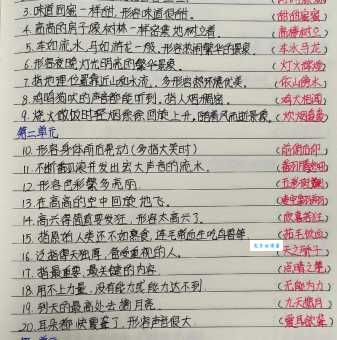 3.味道同蜜一样甜,形容味道很甜。(甜甜蜜蜜)
4.高高的房子像树林一样密集地树立着。(高楼林立)
5.车如流水,马如游龙一般,形容热闹繁华的景象。(车水马龙)
6.形容夜晚灯光明亮的繁华景象。(灯火辉煌)
7.指地理位置靠近山和水流,多形容自然环境优美。(依山傍水)
8.鸡鸣狗吠的声音都能听到,指人烟稠密。(鸡犬相闻)
9.烧火做饭时轻烟袅袅回旋上升,随着风而逝景象。(炊烟袅袅)
第二单元
10.形容身体前后晃动(多指大笑时)(前俯后仰)
11.不断翻滚并发出宏大声音的流水。
12.形容色彩繁多亮丽。
13.在高高的空中回旋地飞。
14.高兴得简直要发狂,形容太高兴了。(欣喜若狂)
15.指原始人类还不知熟食,连毛带血生吃鸟兽等。(茹毛饮血)
16.泛指得天独厚,备受重视的人。(天之骄子)
17.指最重要、最关键的内容。(点睛之笔)
18.用不上力量,没有能力或能力达不到。(无能为力)
19.到天的最高处去摘月亮。(九天揽月)
20.耳朵都快震聋了,形容声音很大。(震耳欲聋)